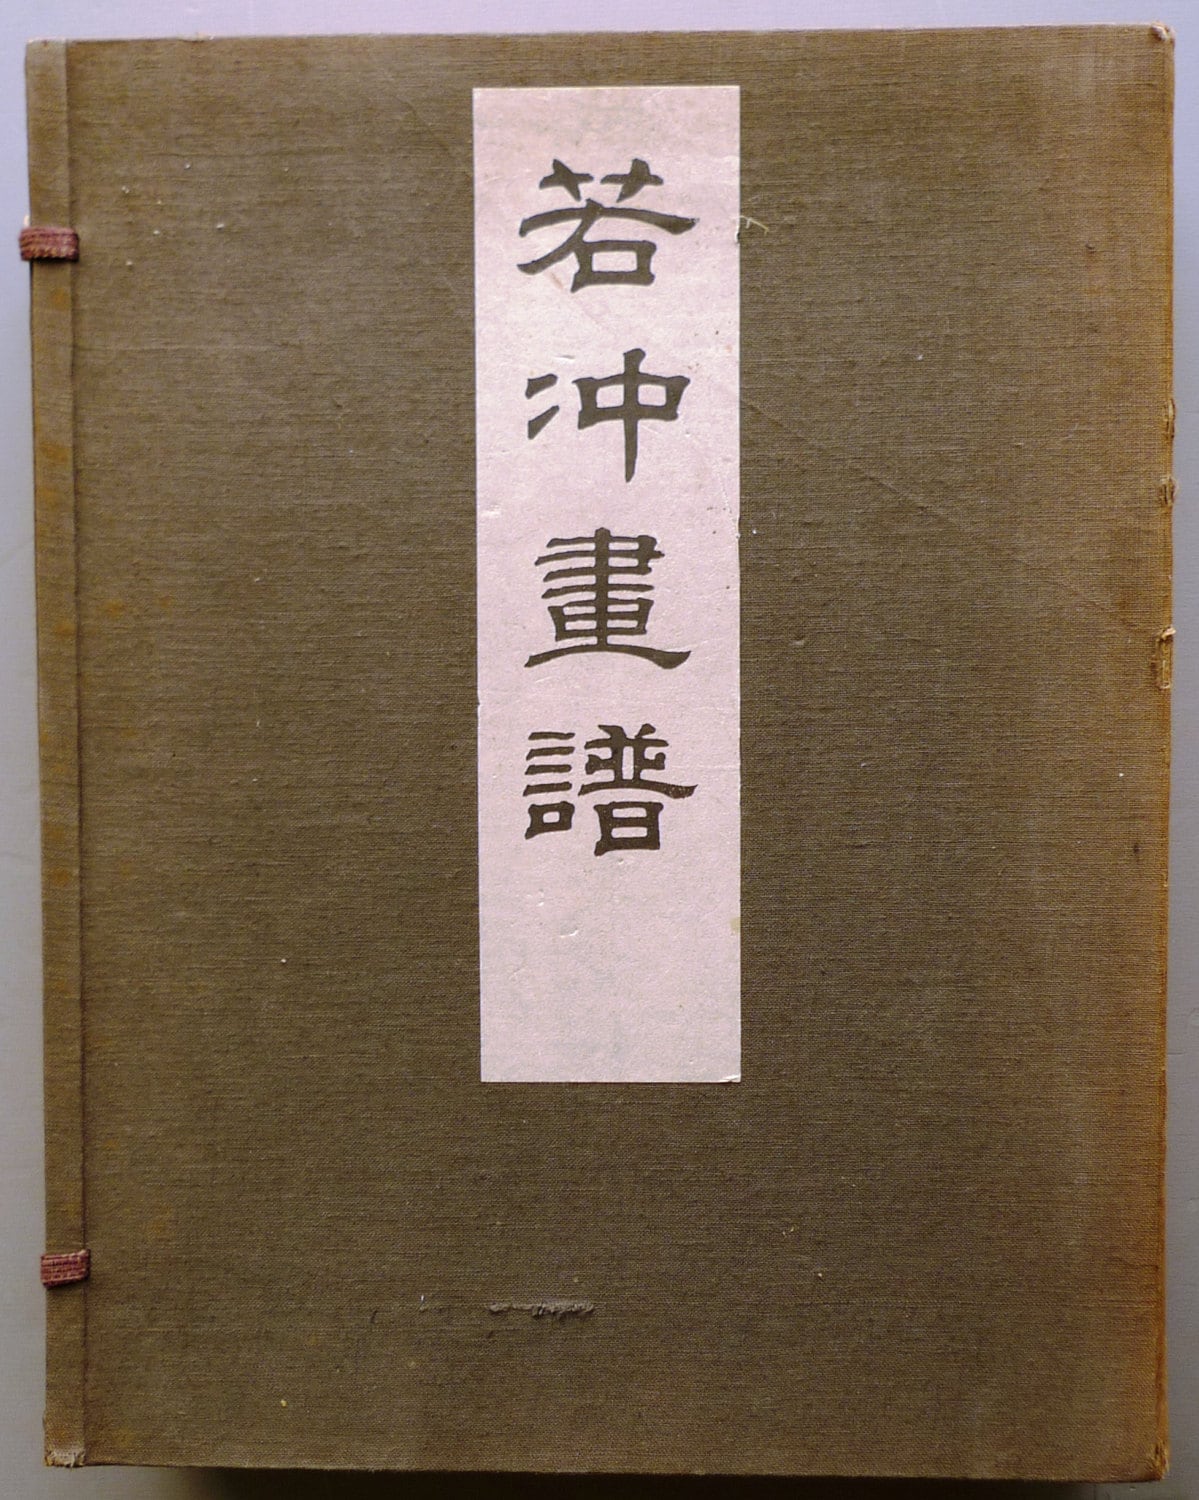 若冲畫譜